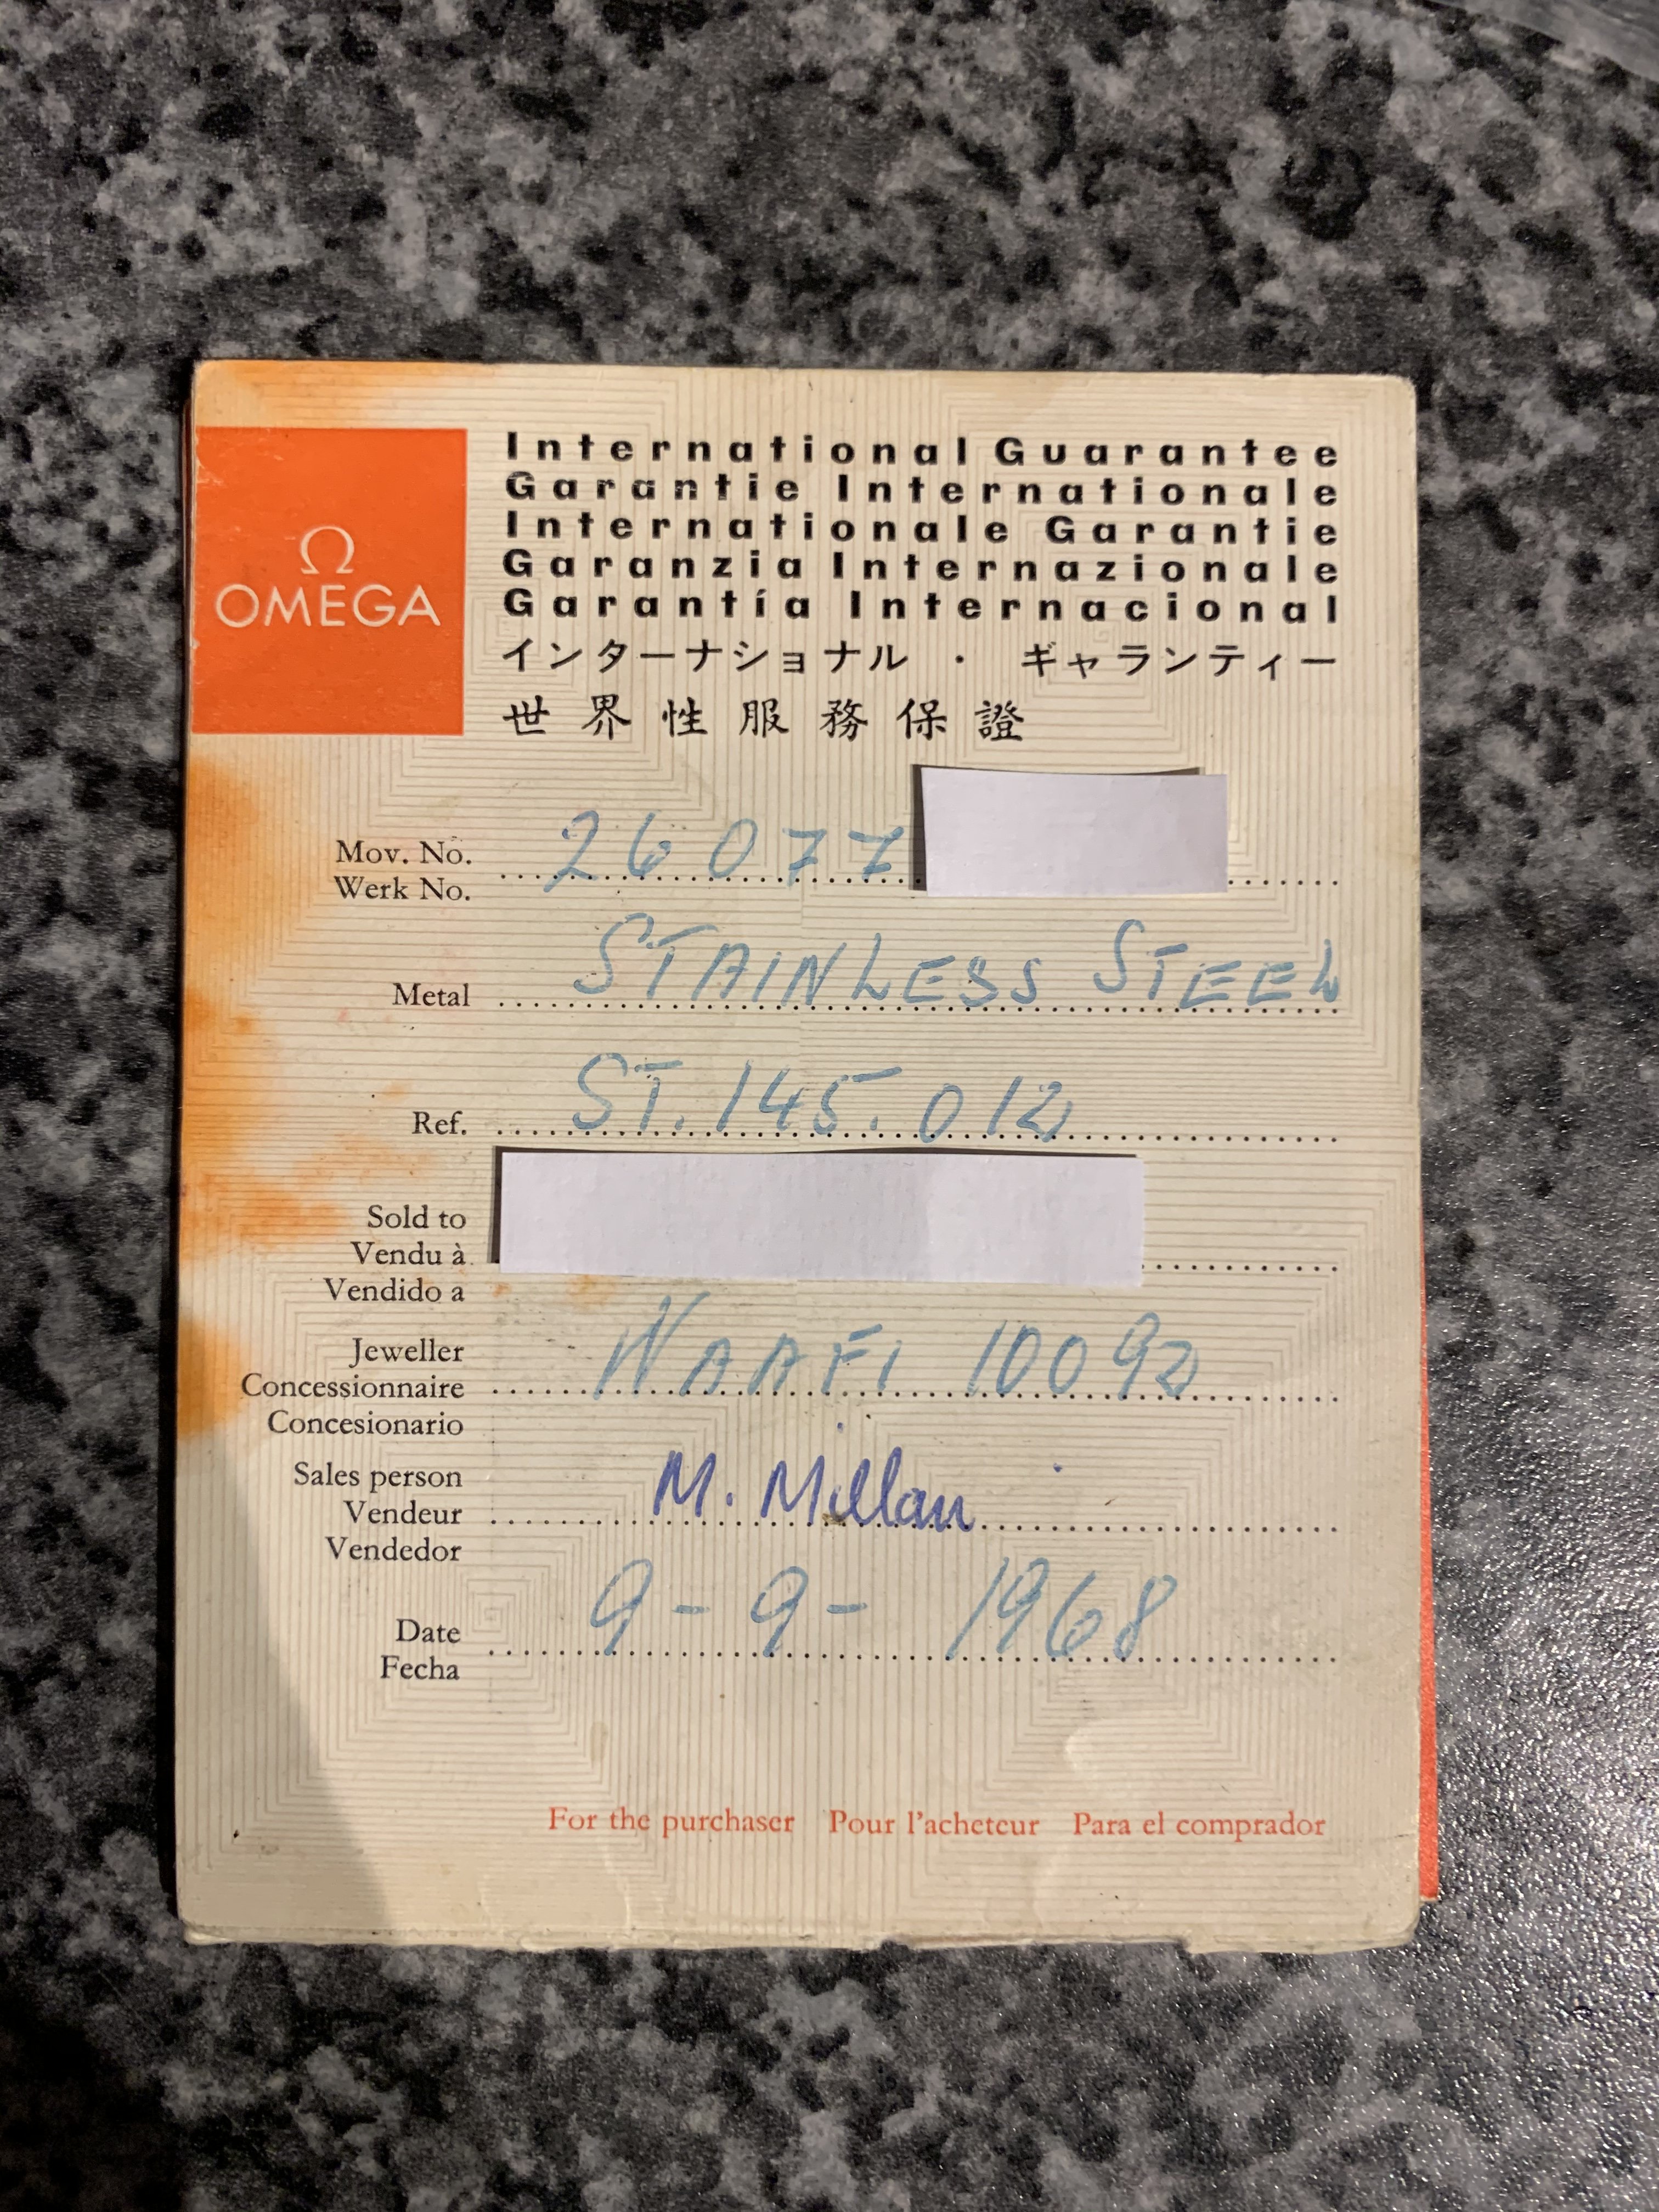 Ω
OMEGA
International Guarantee
Garantie Internationale
Internationale Garantie
Garanzia Internazionale
Garantía Internacional
インターナショナル · ギャランティー
世界性服務保證
Mov. No. 26077
Werk No.
Metal STAINLESS STEEL
Ref. ST. 145. 012
Sold to
Vendu à
Vendido a
Jeweller
Concessionnaire NAAFI 1009
Concesionario
Sales person
Vendeur M. Millan
Vendedor
Date 9-9-1968
Fecha
For the purchaser Pour l'acheteur Para el comprador